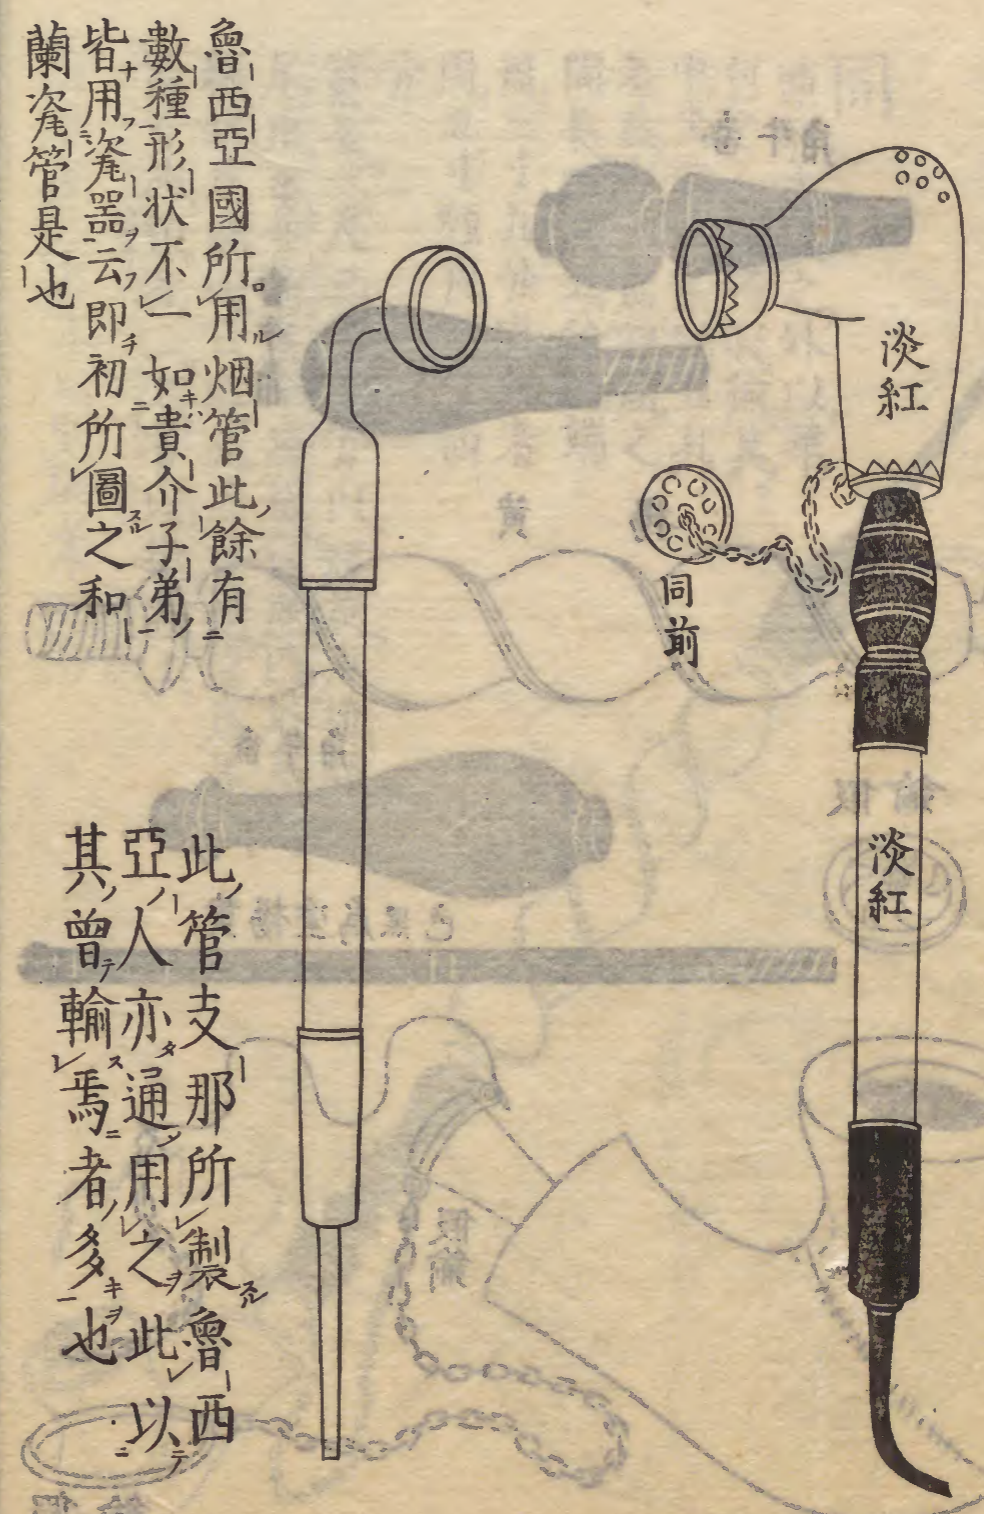 淡紅
同前
淡紅
魯西亞國所用烟管此餘有
數種形状不一如貴介子弟
皆用瓷器云即初所圖之和
蘭瓷管是也
此管支那所製魯西
亞人亦通用之此以
其曾輸焉者多也